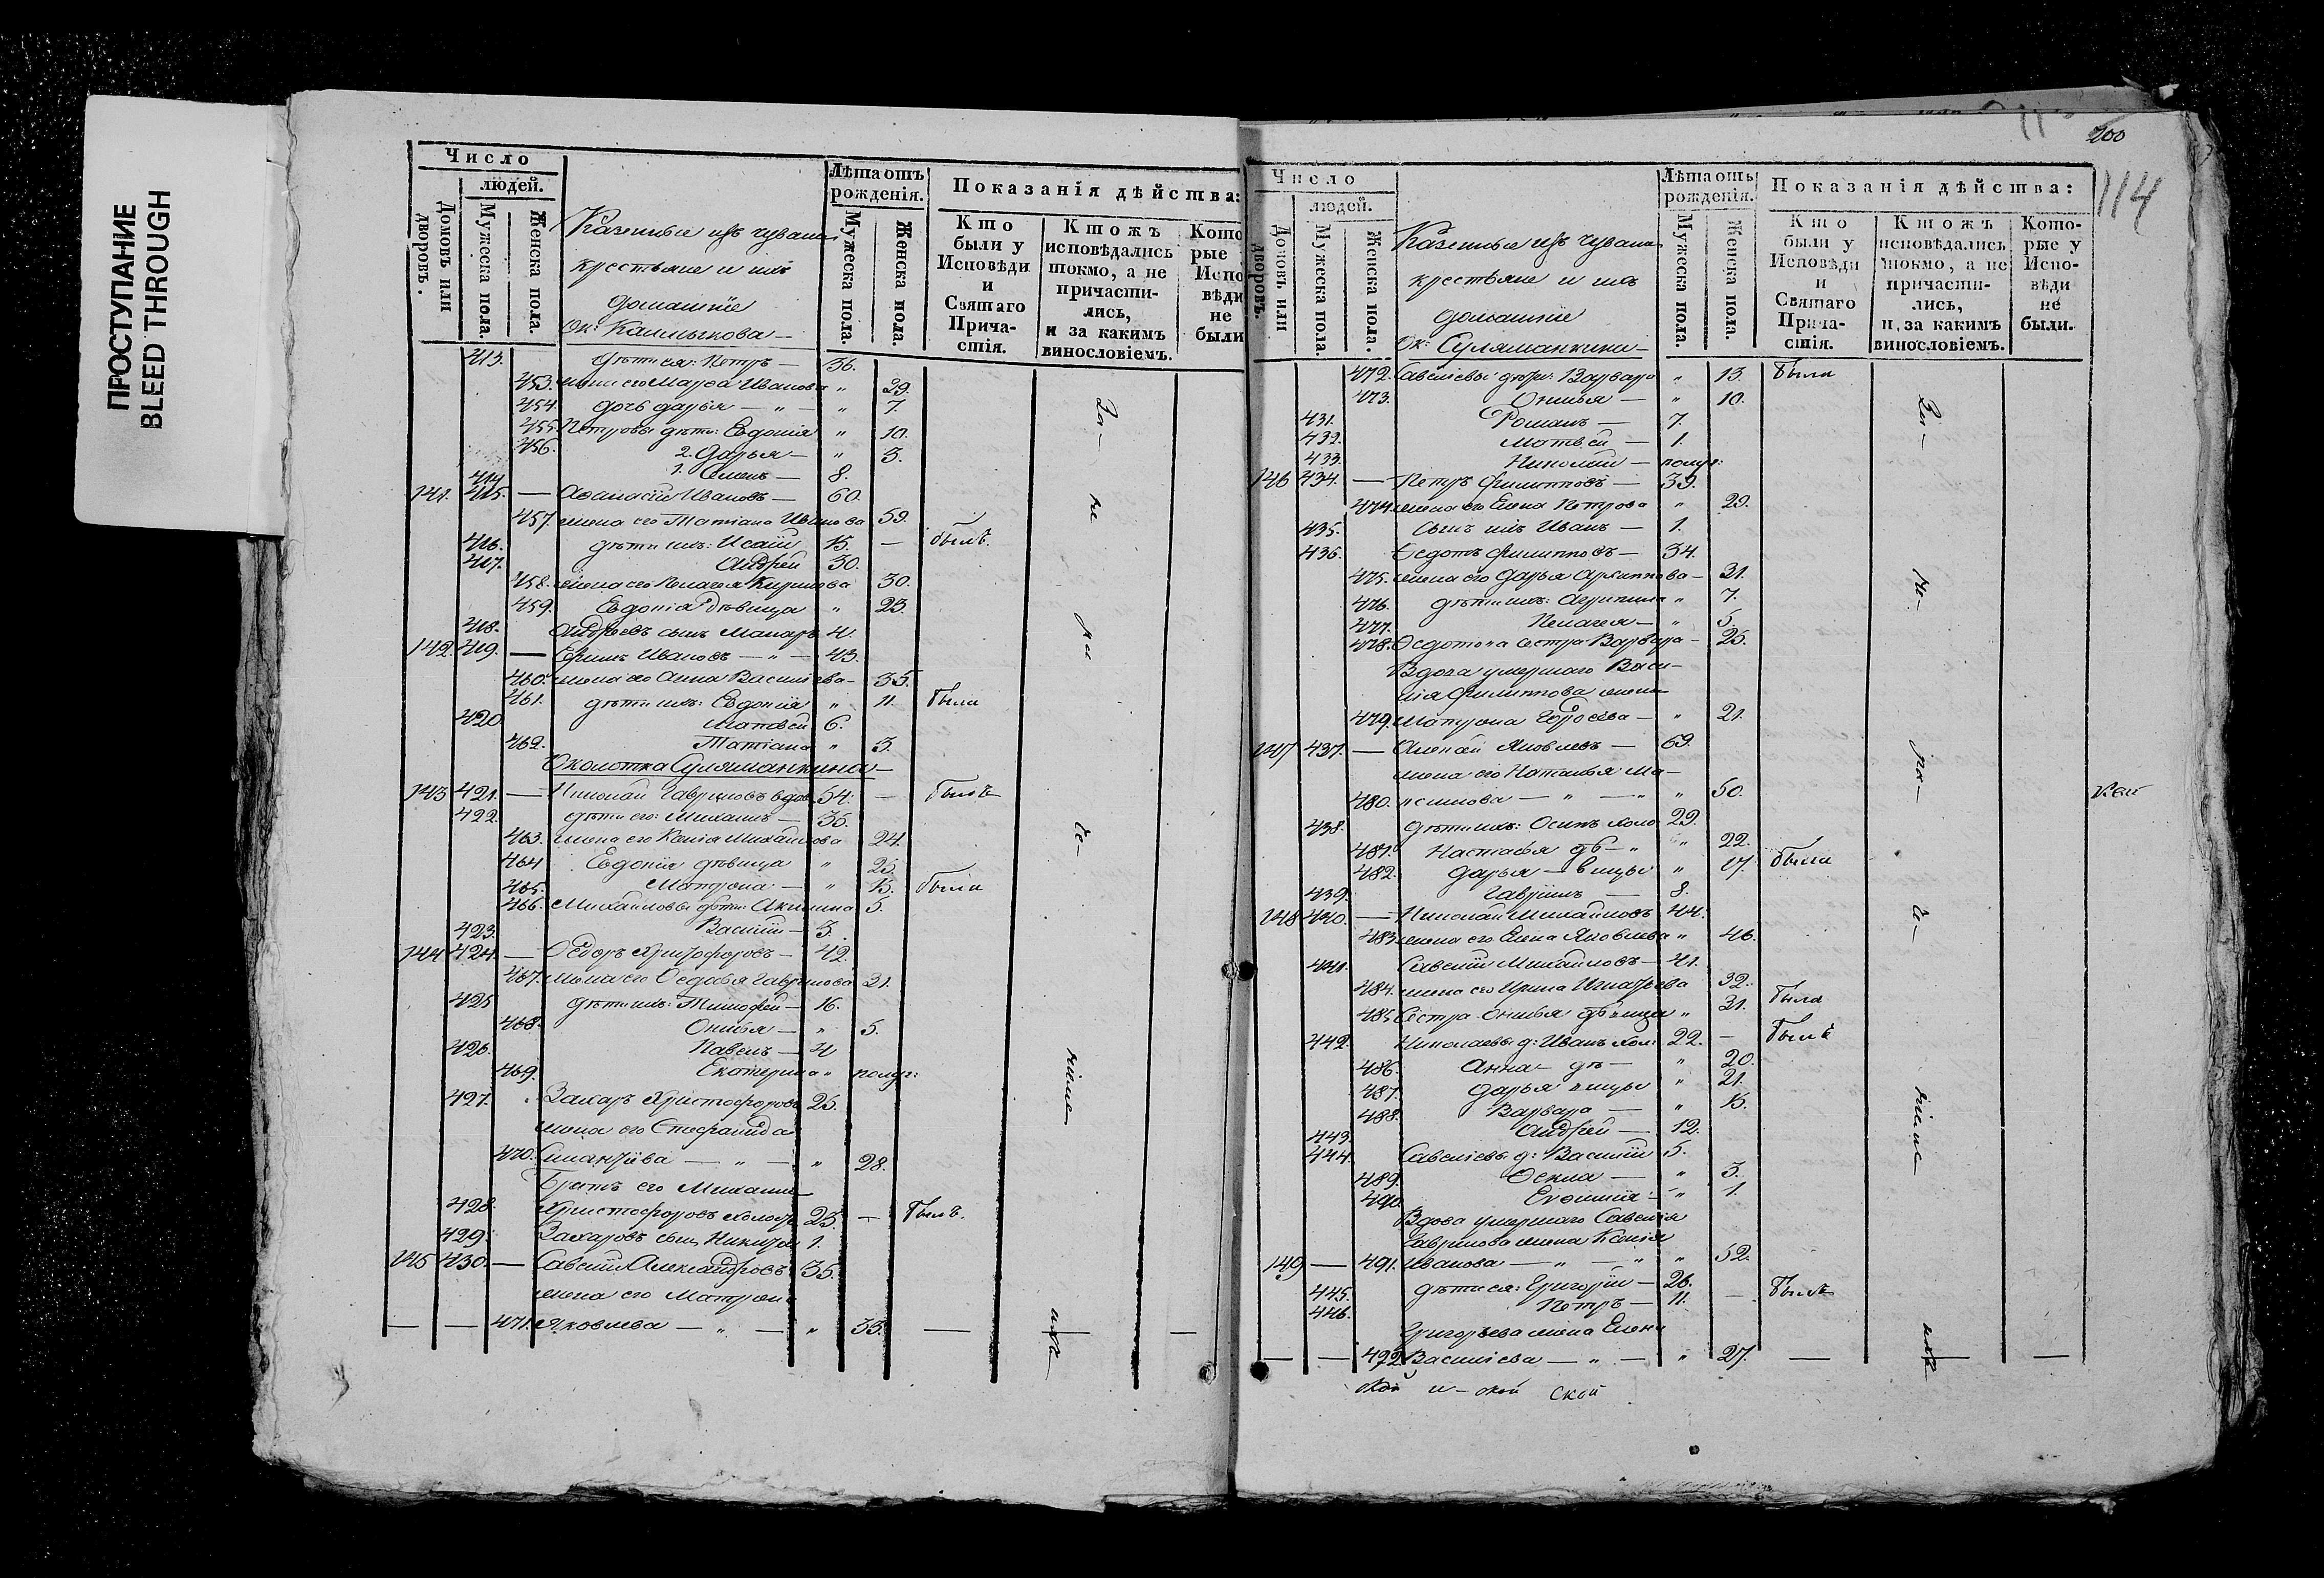 ПРОСТУПАНИЕ
BLEED THROUGH
Число
людей.
Домовъ или дворовъ.
Мужеска пола.
Женска пола.
Казенные изъ чувашъ
крестьяне и ихъ
домашніе
Ок:
Лѣта отъ рожденія.
Мужеска пола.
Женска пола.
Показанія дѣйства:
Кто были у Исповѣди и Святаго Причастія.
Ктожъ исповѣдались токмо, а не причастились, и за какимъ винословіемъ.
Которые Исповѣди не были
413. Петръ — 36.
453. жена его Марѳа Иванова " 29.
454. дочь Дарья — " — " 7.
455. Петровы дѣти: Евдокія " 10.
456. 2. Дарья — " 3.
414 1. Семенъ — 8.
141. 415. — Аѳанасій Ивановъ — 60.
457. жена его Татіана Иванова 59.
416. дѣти ихъ: Исаій 15. — былъ.
417. Андрей 30.
458. жена его Пелагея Кирилова 30.
459. Евдокія дѣвица " 23.
418. Андреевъ сынъ Макаръ 4.
142. 419. — Ефимъ Ивановъ — " — 43.
460. жена его Анна Василіева — 35.
461. дѣти ихъ: Евдокія " 11. была
420 Матвей 6.
462. Татіана " 3.
Околотка Сулиманкина —
143 421. — Николай Гавриловъ вдов. 54. — былъ
422. дѣти его: Михаилъ — 35.
463. жена его Ксенія Михайлова 24.
464 Евдокія дѣвица " 25
465. Матрона — " 15. были
466. Михайловы дѣти: Акилина 5.
423. Василій — 3.
144 424. — Ѳедоръ Христофоровъ — 42.
467. жена его Ѳедосья Гаврилова 31.
425 дѣти ихъ: Тимофей — 16.
468. Онисья — " 5.
426. Павелъ — 4
469. Екатерина " полуг:
427. Захаръ Христофоровъ 25.
жена его Стефанида
470. — " — " 28.
Братъ его Михаилъ
428. Христофоровъ холостъ 23. — былъ.
429. Захаровъ сынъ Никита 1.
145 430. — Савелій Александровъ 35.
жена его Матрона
471. Яковлева — " — " 33. —
За- не ра- че- ніемъ ихъ
200
114
Число
людей.
Домовъ или дворовъ.
Мужеска пола.
Женска пола.
Казенные изъ чувашъ
крестьяне и ихъ
домашніе
Ок: Сулиманкина —
Лѣта отъ рожденія.
Мужеска пола.
Женска пола.
Показанія дѣйства:
Кто были у Исповѣди и Святаго Причастія.
Ктожъ исповѣдались токмо, а не причастились, и за какимъ винословіемъ.
Которые у Исповѣди не были.
472. Савеліевы дѣти: Варвара " 13. были
473. Онисья — " 10.
431. Романъ — 7.
432. Матвей — 1.
433. Николай — полуг:
146 434. — Петръ Филипповъ — 39.
474. жена его Елена Петрова " 29.
435. сынъ ихъ Иванъ — 1.
436. Ѳедотъ Филипповъ — 34.
475. жена его Дарья Архиппова — 31.
476. дѣти ихъ: Агрипина " 7.
477. Пелагея — " 5.
478. Ѳедотова сестра Варвара — 25.
Вдова умершаго Васи-
лія Филиппова жена
479. Матрона — " 21.
147 437. — Алексѣй Яковлевъ — 69.
жена его Наталья Ма-
480. ксимова — " — " " 50.
438. дѣти ихъ: Осипъ холо 29.
481. Настасья дѣ- " " 22.
482. Дарья — вицы " 17. были
439. Гаврiилъ — 8.
148 440. — Николай Михайловъ 44.
483. жена его Елена Яковлева " 46.
441. Савелій Михайловъ — 41.
484. жена его Ирина Игнатьева 32.
485. Сестра Онисья дѣвица " 31. была
442. Николаевы д: Иванъ хол: 22. — былъ
486. Анна — дѣ — " 20.
487. Дарья вицы " 21.
488. Варвара — " 15.
443. Андрей — 12.
444. Савеліевы д: Василій 5.
489. Ѳекла — " 3.
490. Евфимія — " 1.
Вдова умершаго Савелія
Гаврилова жена Ксенія
149 — 491. Иванова — " — " " 52.
445. дѣти ея: Григорій — 26. — былъ
446. Петръ — 11.
Григорьева жена Елена
492. Василіева — " — " 27. —
За- не- ра- че- ніемъ ихъ
ской